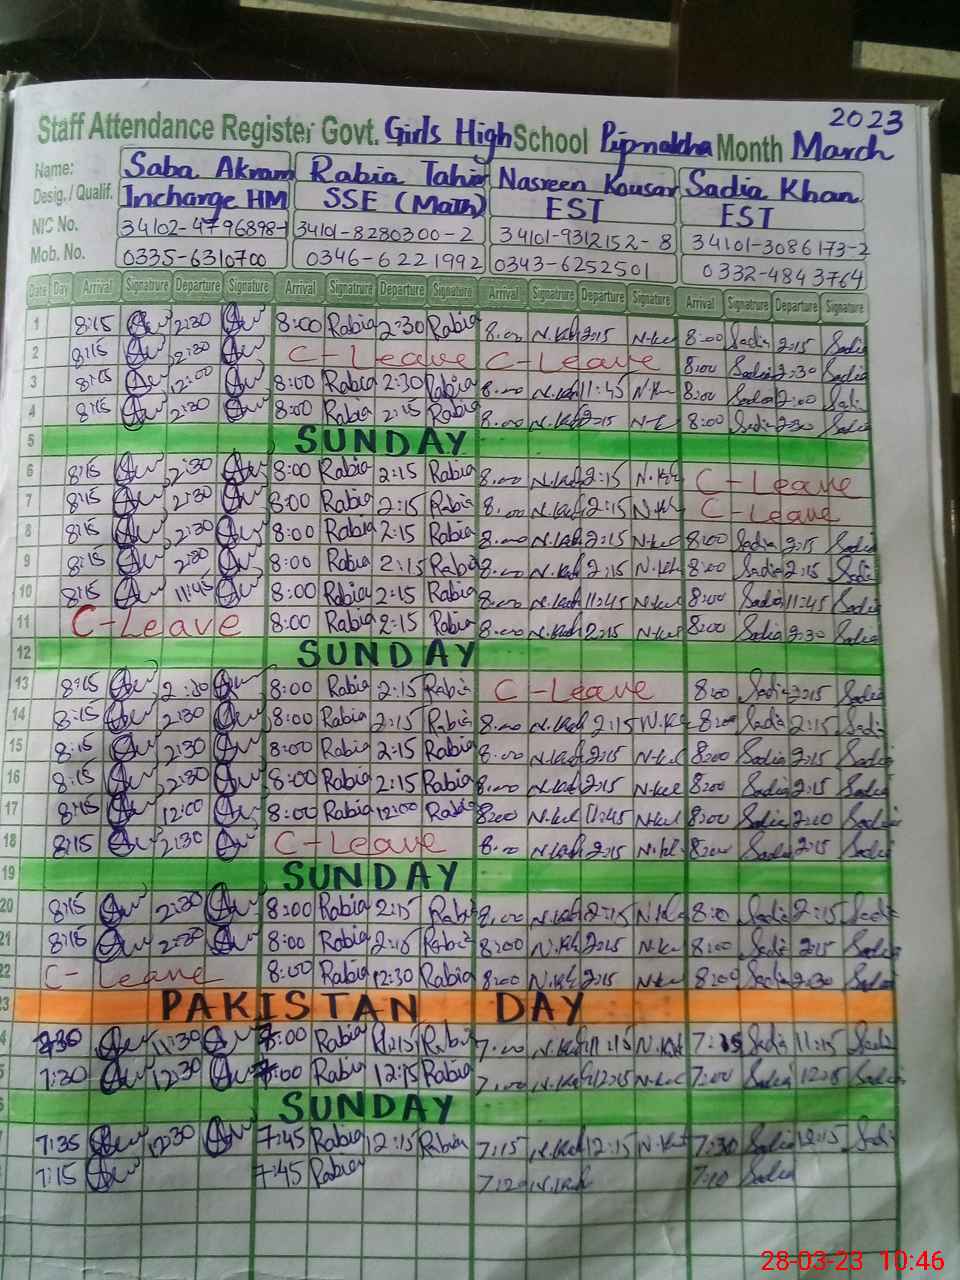 2023
Staff Attendance Register Govt. Girls High School Pipnakha Month March
Name: Saba Akram Rabia Tahir Nasreen Kousar Sadia Khan
Desig. / Qualif. Incharge HM SSE (Math) EST EST
NIC No. 34102-4796898-1 34101-8280300-2 34101-9312152-8 34101-3086173-2
Mob. No. 0335-6310700 0346-6221992 0343-6252501 0332-4843764
Date Day Arrival Signatrure Departure Signature Arrival Signatrure Departure Signature Arrival Signatrure Departure Signature Arrival Signatrure Departure Signature
1 8:15 2:30 8:00 Rabia 2:30 Rabia 8:00 2:15 8:00 Sadia 2:15 Sadia
2 8:15 2:30 C-Leave C-Leave 8:00 Sadia 2:30 Sadia
3 8:15 12:00 8:00 Rabia 2:30 Rabia 8:00 11:45 8:00 Sadia Sadia
4 8:15 2:30 8:00 Rabia 2:15 Rabia 8:00 2:15 8:00 Sadia Sadia
5 SUNDAY
6 8:15 2:30 8:00 Rabia 2:15 Rabia 8:00 2:15 C-Leave
7 8:15 2:30 8:00 Rabia 2:15 Rabia 8:00 2:15 C-Leave
8 8:15 2:30 8:00 Rabia 2:15 Rabia 8:00 2:15 8:00 Sadia 2:15 Sadia
9 8:15 2:30 8:00 Rabia 2:15 Rabia 8:00 2:15 8:00 Sadia 2:15 Sadia
10 8:15 11:45 8:00 Rabia 2:15 Rabia 8:00 11:45 8:00 Sadia 11:45 Sadia
11 C-Leave 8:00 Rabia 2:15 Rabia 8:00 2:15 8:00 Sadia 2:30 Sadia
12 SUNDAY
13 8:15 2:30 8:00 Rabia 2:15 Rabia C-Leave 8:00 Sadia 2:15 Sadia
14 8:15 2:30 8:00 Rabia 2:15 Rabia 8:00 2:15 8:00 Sadia 2:15 Sadia
15 8:15 2:30 8:00 Rabia 2:15 Rabia 8:00 2:15 8:00 Sadia 2:15 Sadia
16 8:15 2:30 8:00 Rabia 2:15 Rabia 8:00 2:15 8:00 Sadia 2:15 Sadia
17 8:15 12:00 8:00 Rabia 12:00 Rabia 8:00 11:45 8:00 Sadia Sadia
18 8:15 2:30 C-Leave 8:00 2:15 8:00 Sadia 2:15 Sadia
19 SUNDAY
20 8:15 2:30 8:00 Rabia 2:15 Rabia 8:00 2:15 8:00 Sadia 2:15 Sadia
21 8:15 2:30 8:00 Rabia 2:15 Rabia 8:00 2:15 8:00 Sadia 2:15 Sadia
22 C-Leave 8:00 Rabia 12:30 Rabia 8:00 2:15 8:00 Sadia 2:30 Sadia
23 PAKISTAN DAY
4 11:30 Rabia 11:15 Rabia 7:00 11:15 Sadia 11:15 Sadia
5 7:30 12:30 Rabia 12:15 Rabia 7:00 12:15 7:00 Sadia 12:15 Sadia
6 SUNDAY
7:35 12:30 7:45 Rabia 12:15 Rabia 7:15 12:15 7:30 Sadia 12:15 Sadia
7:15 7:45 Rabia 7:10 Sadia
28-03-23 10:46